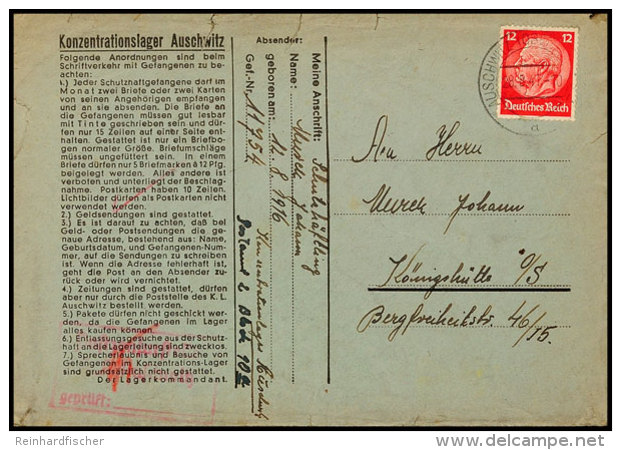 Konzentrationslager Auschwitz
Folgende Anordnungen sind beim
Schriftverkehr mit Gefangenen zu be-
achten:
1.) Jeder Schutzhaftgefangene darf im
Monat zwei Briefe oder zwei Karten
von seinen Angehörigen empfangen
und an sie absenden. Die Briefe an
die Gefangenen müssen gut lesbar
mit Tinte geschrieben sein und dür-
fen nur 15 Zeilen auf einer Seite ent-
halten. Gestattet ist nur ein Briefbo-
gen normaler Größe. Briefumschläge
müssen ungefüttert sein. In einem
Briefe dürfen nur 5 Briefmarken à 12 Pfg.
beigelegt werden. Alles andere ist
verboten und unterliegt der Beschlag-
nahme. Postkarten haben 10 Zeilen.
Lichtbilder dürfen als Postkarten nicht
verwendet werden.
2.) Geldsendungen sind gestattet.
3.) Es ist darauf zu achten, daß bei
Geld- oder Postsendungen die ge-
naue Adresse, bestehend aus: Name,
Geburtsdatum, und Gefangenen-Num-
mer, auf die Sendungen zu schreiben
ist. Wenn die Adresse fehlerhaft ist,
geht die Post an den Absender zu-
rück oder wird vernichtet.
4.) Zeitungen sind gestattet, dürfen
aber nur durch die Poststelle des K. L.
Auschwitz bestellt werden.
5.) Pakete dürfen nicht geschickt wer-
den, da die Gefangenen im Lager
alles kaufen können.
6.) Entlassungsgesuche aus der Schutz-
haft an die Lagerleitung sind zwecklos.
7.) Sprecherlaubnis und Besuche von
Gefangenen im Konzentrations-Lager
sind grundsätzlich nicht gestattet.
Der Lagerkommandant.
geprüft:
Absender:
Meine Anschrift: Schutzhäftling
Name: Johann
geboren am: 12. 8. 1916
Gef.-Nr. 11954
Konzentrationslager Auschwitz
Block 10a
12 12
Deutsches Reich
AUSCHWITZ
a
An Herrn
Johann
Königshütte O/S
Bergfreiheitstr. 46/15.
Reinhardfischer
delcampe.net